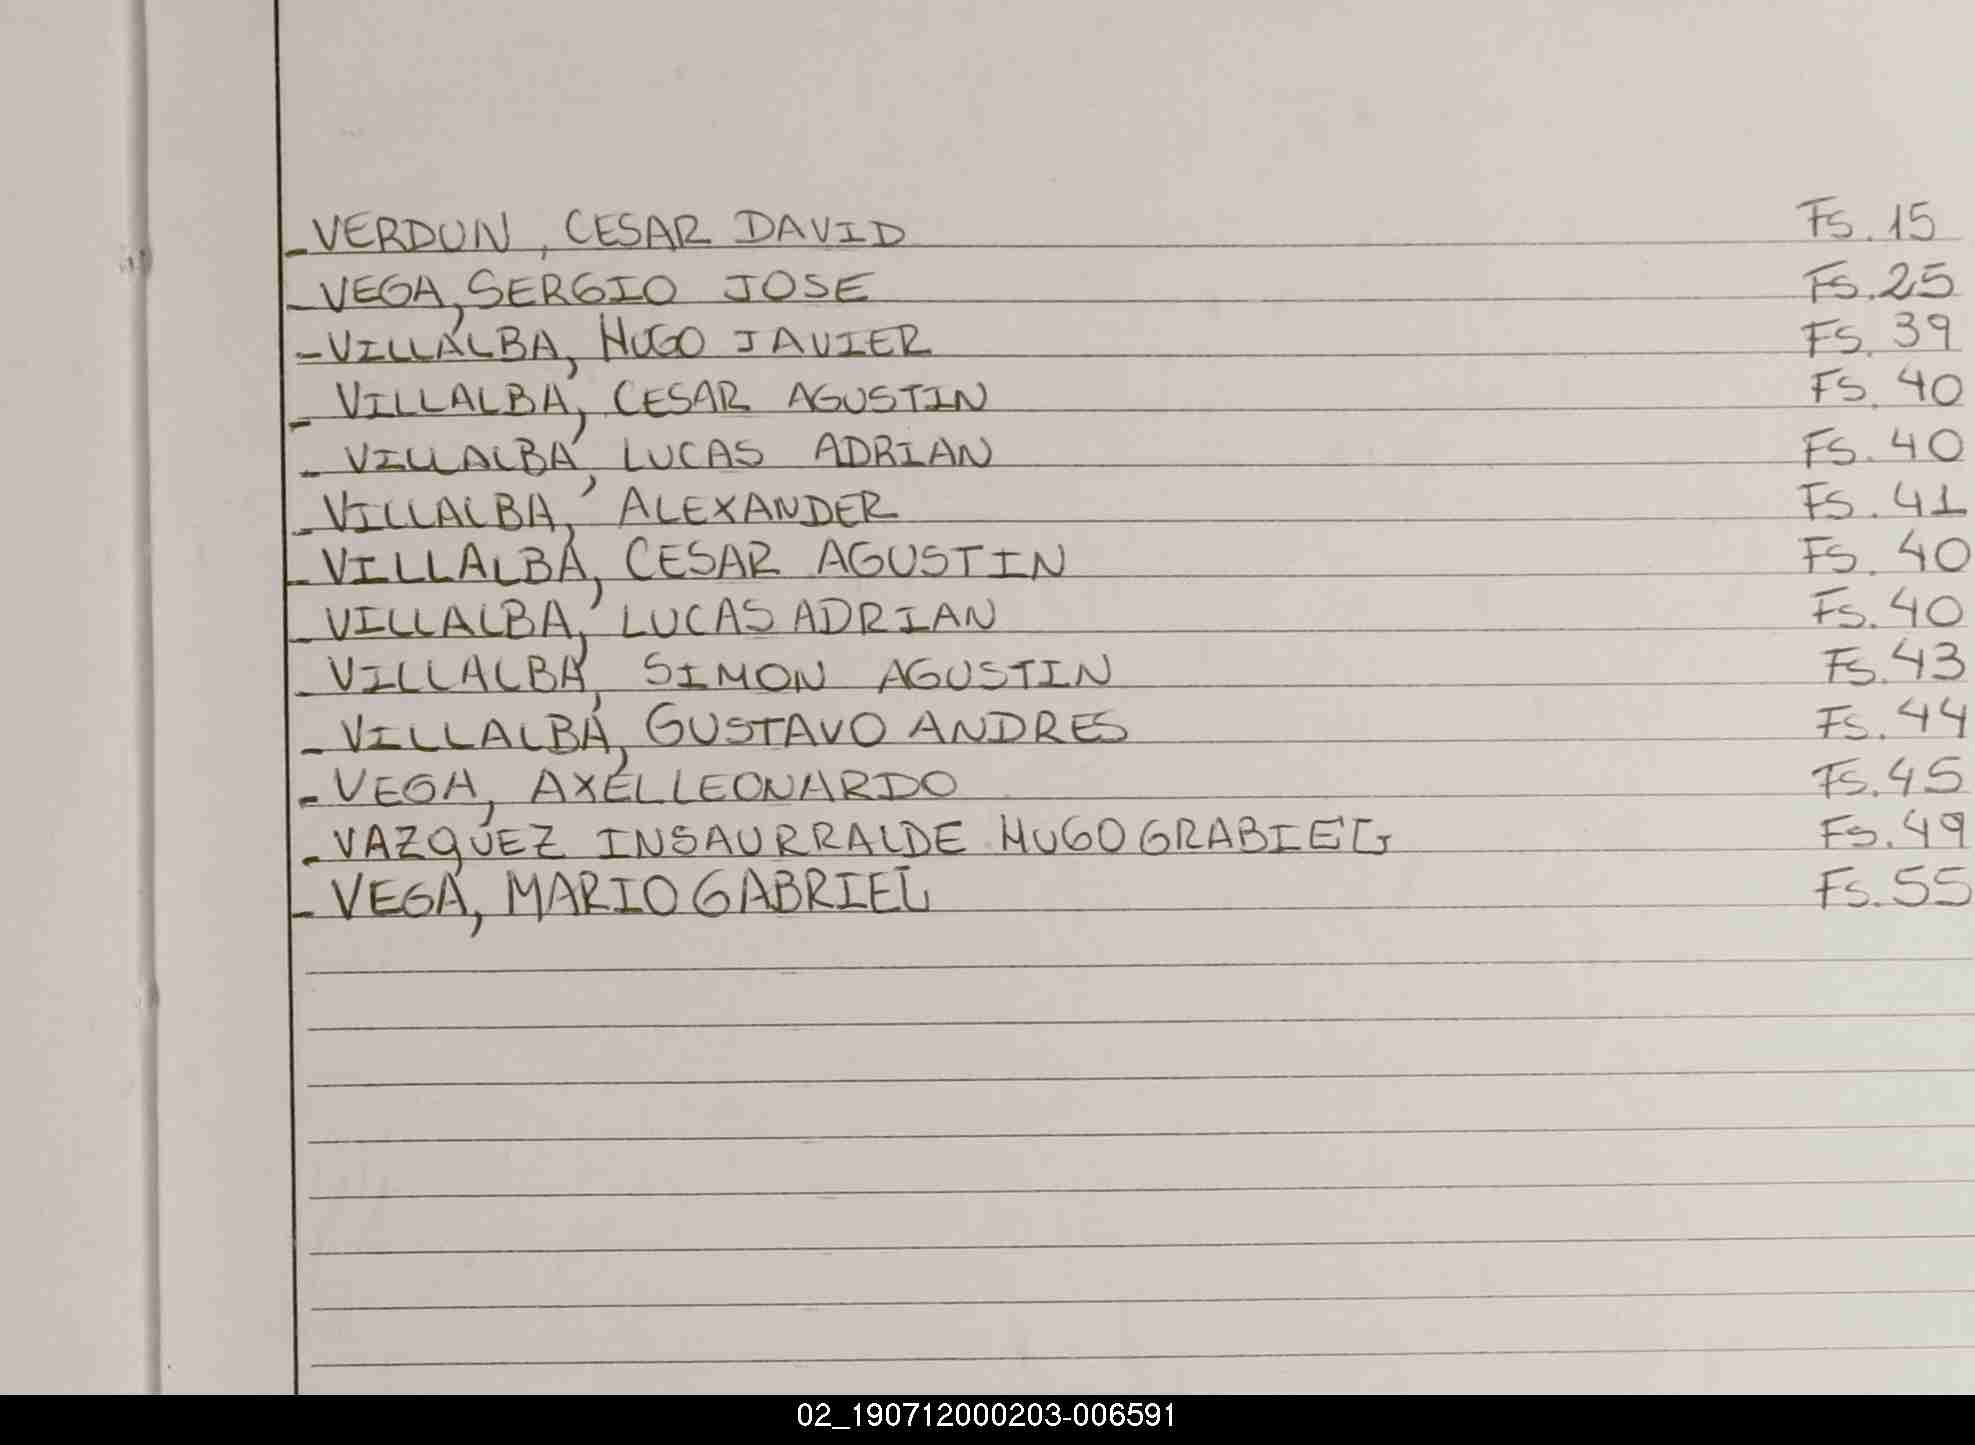 - VERDUN, CESAR DAVID Fs. 15
- VEGA, SERGIO JOSE Fs. 25
- VILLALBA, HUGO JAVIER Fs. 39
- VILLALBA, CESAR AGUSTIN Fs. 40
- VILLALBA, LUCAS ADRIAN Fs. 40
- VILLALBA, ALEXANDER Fs. 41
- VILLALBA, CESAR AGUSTIN Fs. 40
- VILLALBA, LUCAS ADRIAN Fs. 40
- VILLALBA, SIMON AGUSTIN Fs. 43
- VILLALBA, GUSTAVO ANDRES Fs. 44
- VEGA, AXEL LEONARDO Fs. 45
- VAZQUEZ INSAURRALDE HUGO GRABIEL Fs. 49
- VEGA, MARIO GABRIEL Fs. 55
02_190712000203-006591